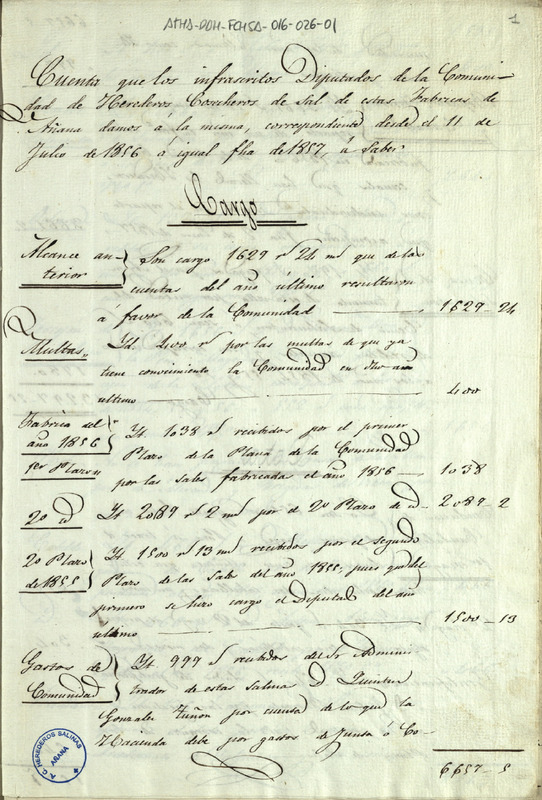 ATHA-DDH-FCHSA-016-026-01
1
Cuenta que los infrascritos Diputados de la Comuni-
dad de Herederos Cosecheros de Sal de estas Fabricas de
Añana damos á la misma, correspondiente desde el 11 de
Julio de 1856 á igual fha de 1857, á Saber
Cargo
Alcance an-
terior
Son cargo 1629 rs 24 ms que de las
cuentas del año último resultaron
á favor de la Comunidad 1629-24
Multas
Yd. 400 rs por las multas de que ya
tiene conocimiento la Comunidad en dho año
ultimo 400
Fabrica del
año 1856
1er Plazo
Yt 1038 rs recibidos por el primer
Plazo de la Plana de la Comunidad
por las sales fabricadas el año 1856 1038
2o id
Yt 2089 rs 2 ms por el 2o Plazo de id 2089-2
2o Plazo
de 1855
Yt 1500 rs 13 ms recibidos por el segundo
Plazo de las Sales del año 1855, pues que del
primero se hizo cargo el Diputado del año
ultimo 1500-13
Gastos de
Comunidad
Yt 999 rs recibidos del Sr Adminis-
trador de estas salinas D Quintin
Gonzalez Tuñon por cuenta de lo que la
Hacienda debe por gastos de Junta ó Co-
6657-5
A.C. HEREDEROS SALINAS
AÑANA